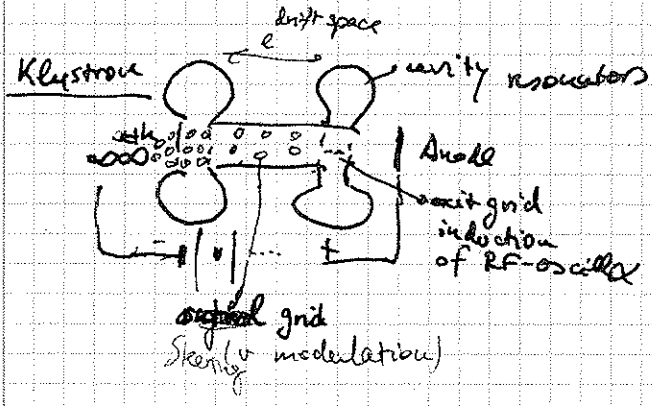 drift space
l
Klystron
cavity resonators
Anode
- +
exit grid
induction
of RF-oscill
grid
(v modulation)